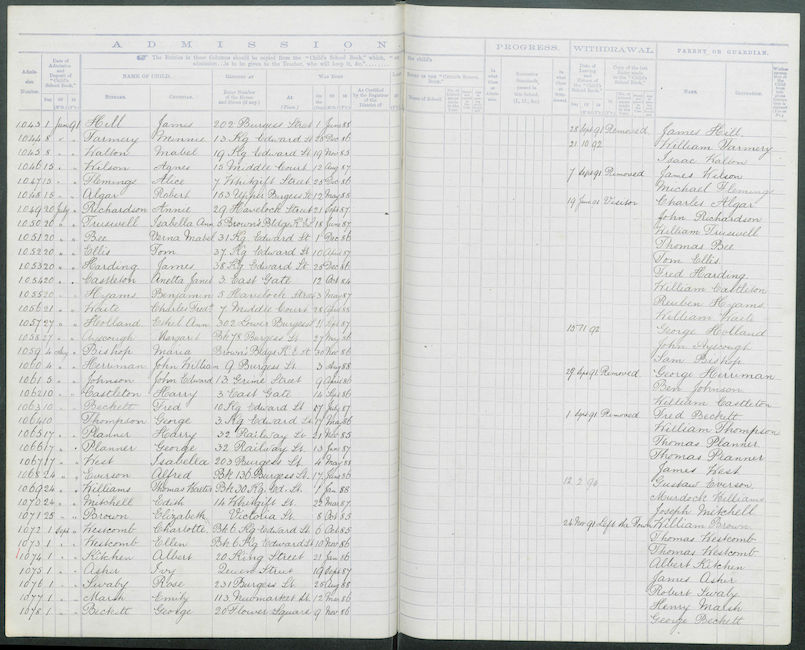 ADMISSION
PROGRESS. WITHDRAWAL PARENT OR GUARDIAN.
NAME OF CHILD.
SURNAME. CHRISTIAN. NAME.
1043 1 June 91 Hill James 202 Burgess Street 1 June 88 28 Sept 91 Removed James Hill
1044 8 " " Farmery Minnie 13 Kg Edward St 25 Dec 86 21 10 92 William Farmery
1045 8 " " Walton Mabel 19 Kg Edward St 19 Nov 85 Isaac Walton
1046 15 " " Wilson Agnes 15 Middle Court 12 Aug 87 7 Sept 91 Removed James Wilson
1047 15 " " Fleming Alice 7 Whitgift Street 25 Dec 86 Michael Fleming
1048 15 " " Algar Robert 153 Upper Burgess St 12 May 88 19 June 91 Visitor Charles Algar
1049 20 July " Richardson Annie 29 Havelock Street 21 Sept 87 John Richardson
1050 20 " " Truswell Isabella Ann 5 Brown's Bldgs 18 June 87 William Truswell
1051 20 " " Bee Verna Mabel 31 Kg Edward St 1 Dec 86 Thomas Bee
1052 20 " " Ellis Tom 37 Kg Edward St 10 87 Tom Ellis
1053 20 " " Harding James 38 Kg Edward St 25 Dec 86 Fred Harding
1054 20 " " Castleton Anetta Jane 3 East Gate 12 Oct 84 William Castleton
1055 20 " " Hyams Benjamin 5 Havelock Street 3 May 87 Reuben Hyams
1056 21 " " Waite Charles Fredk 7 Middle Court 28 88 William Waite
1057 27 " " Holland Ethel Ann 302 Lower Burgess 11 Sept 87 15 11 92 George Holland
1058 27 " " Ayscough Margaret Bk 78 Burgess St 27 May 86 John Ayscough
1059 4 Aug " Bishop Maria Brown's Bldgs K. E. St 30 Nov 86 Sam Bishop
1060 4 " " Herriman John William 9 Burgess St. 3 Aug 88 29 Sept 91 Removed George Herriman
1061 5 " " Johnson John Edward 13 Street 9 April 86 Ben Johnson
1062 10 " " Castleton Harry 3 East Gate 14 Sept 86 William Castleton
1063 10 " " Beckett Fred 10 Kg Edward St 17 July 87 1 Sept 91 Removed Fred Beckett
1064 10 " " Thompson George 3 Kg Edward St 17 May 86 William Thompson
1065 17 " " Planner Harry 32 Railway St 21 Nov 85 Thomas Planner
1066 17 " " Planner George 32 Railway St. 13 Jan 87 Thomas Planner
1067 17 " " West Isabella 203 Burgess St. 4 May 88 James West
1068 24 " " Everson Alfred Bk 136 Burgess St. 17 June 86 12 2 94 Gustaw Everson
1069 24 " " Williams Thomas Walter Bk 30 Kg. Ed. St. 7 Jan 88 Murdock Williams
1070 24 " " Mitchell Edith 14 Whitgift St. 22 Mar 87 Joseph Mitchell
1071 25 " " Brown Elizabeth Victoria St. 8 Oct 85 24 Nov 91 Left the Town William Brown
1072 1 Sept " Westcomb Charlotte Bk 6 Kg Edward St 6 Oct 85 Thomas Westcomb
1073 1 " " Westcomb Ellen Bk 6 Kg Edward St 10 Nov 86 Thomas Westcomb
1074 1 " " Kitchen Albert 20 King Street 21 Jan 86 Albert Kitchen
1075 1 " " Asher Ivy Queen Street 19 Sept 87 James Asher
1076 1 " " Swaby Rose 231 Burgess St. 28 Aug 88 Robert Swaby
1077 1 " " Marsh Emily 113 Newmarket St. 12 Mar 86 Henry Marsh
1078 1 " " Beckett George 20 Flower Square 9 Nov 86 George Beckett